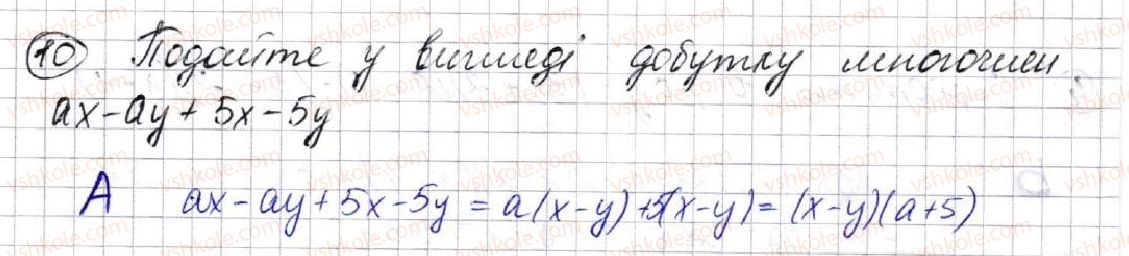 10 Подайте у вигляді добутку многочлен
ax-ay+5x-5y
A ax-ay+5x-5y = a(x-y)+5(x-y)= (x-y)(a+5)